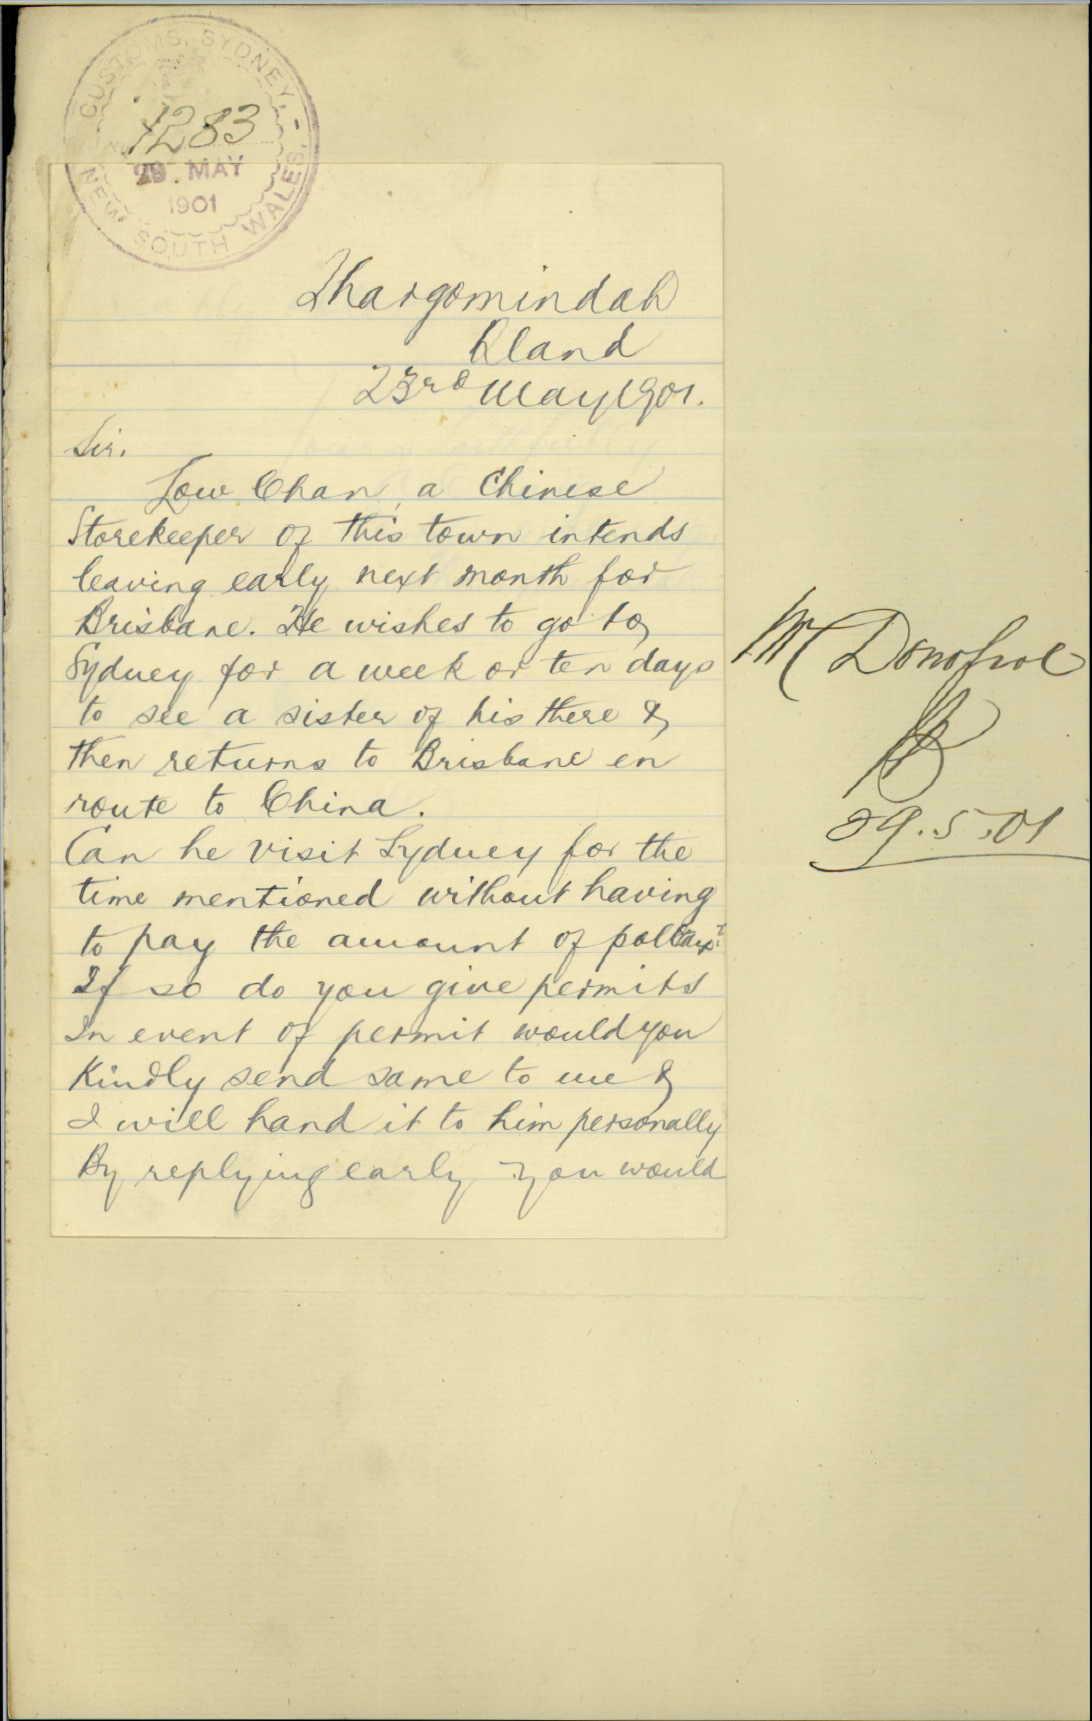 CUSTOMS, SYDNEY, -
NEW SOUTH WALES.
1283
29 MAY
1901
Thargomindah
Qland
23rd May 1901.
Sir.
Low Chan, a Chinese
Storekeeper of this town intends
leaving early next month for
Brisbane. He wishes to go to
Sydney for a week or ten days
to see a sister of his there &
then returns to Brisbane en
route to China.
Can he visit Sydney for the
time mentioned without having
to pay the amount of polltax?
If so do you give permits
In event of permit would you
Kindly send same to me &
I will hand it to him personally
By replying early you would
Mr Donohoe
29.5.01